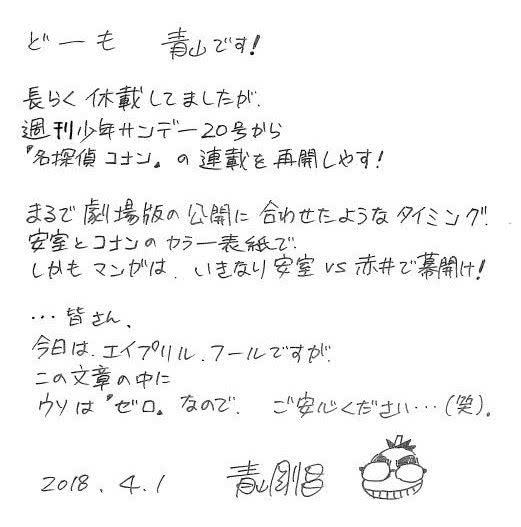 どーも 青山です!
長らく休載してましたが、
週刊少年サンデー20号から
『名探偵コナン』の連載を再開しやす!
まるで劇場版の公開に合わせたようなタイミング!
安室とコナンのカラー表紙で、
しかもマンガは、いきなり安室vs赤井で幕開け!
…皆さん、
今日は、エイプリル、フールですが、
この文章の中に
ウソは『ゼロ』なので、ご安心ください…(笑)。
2018.4.1 青山剛昌